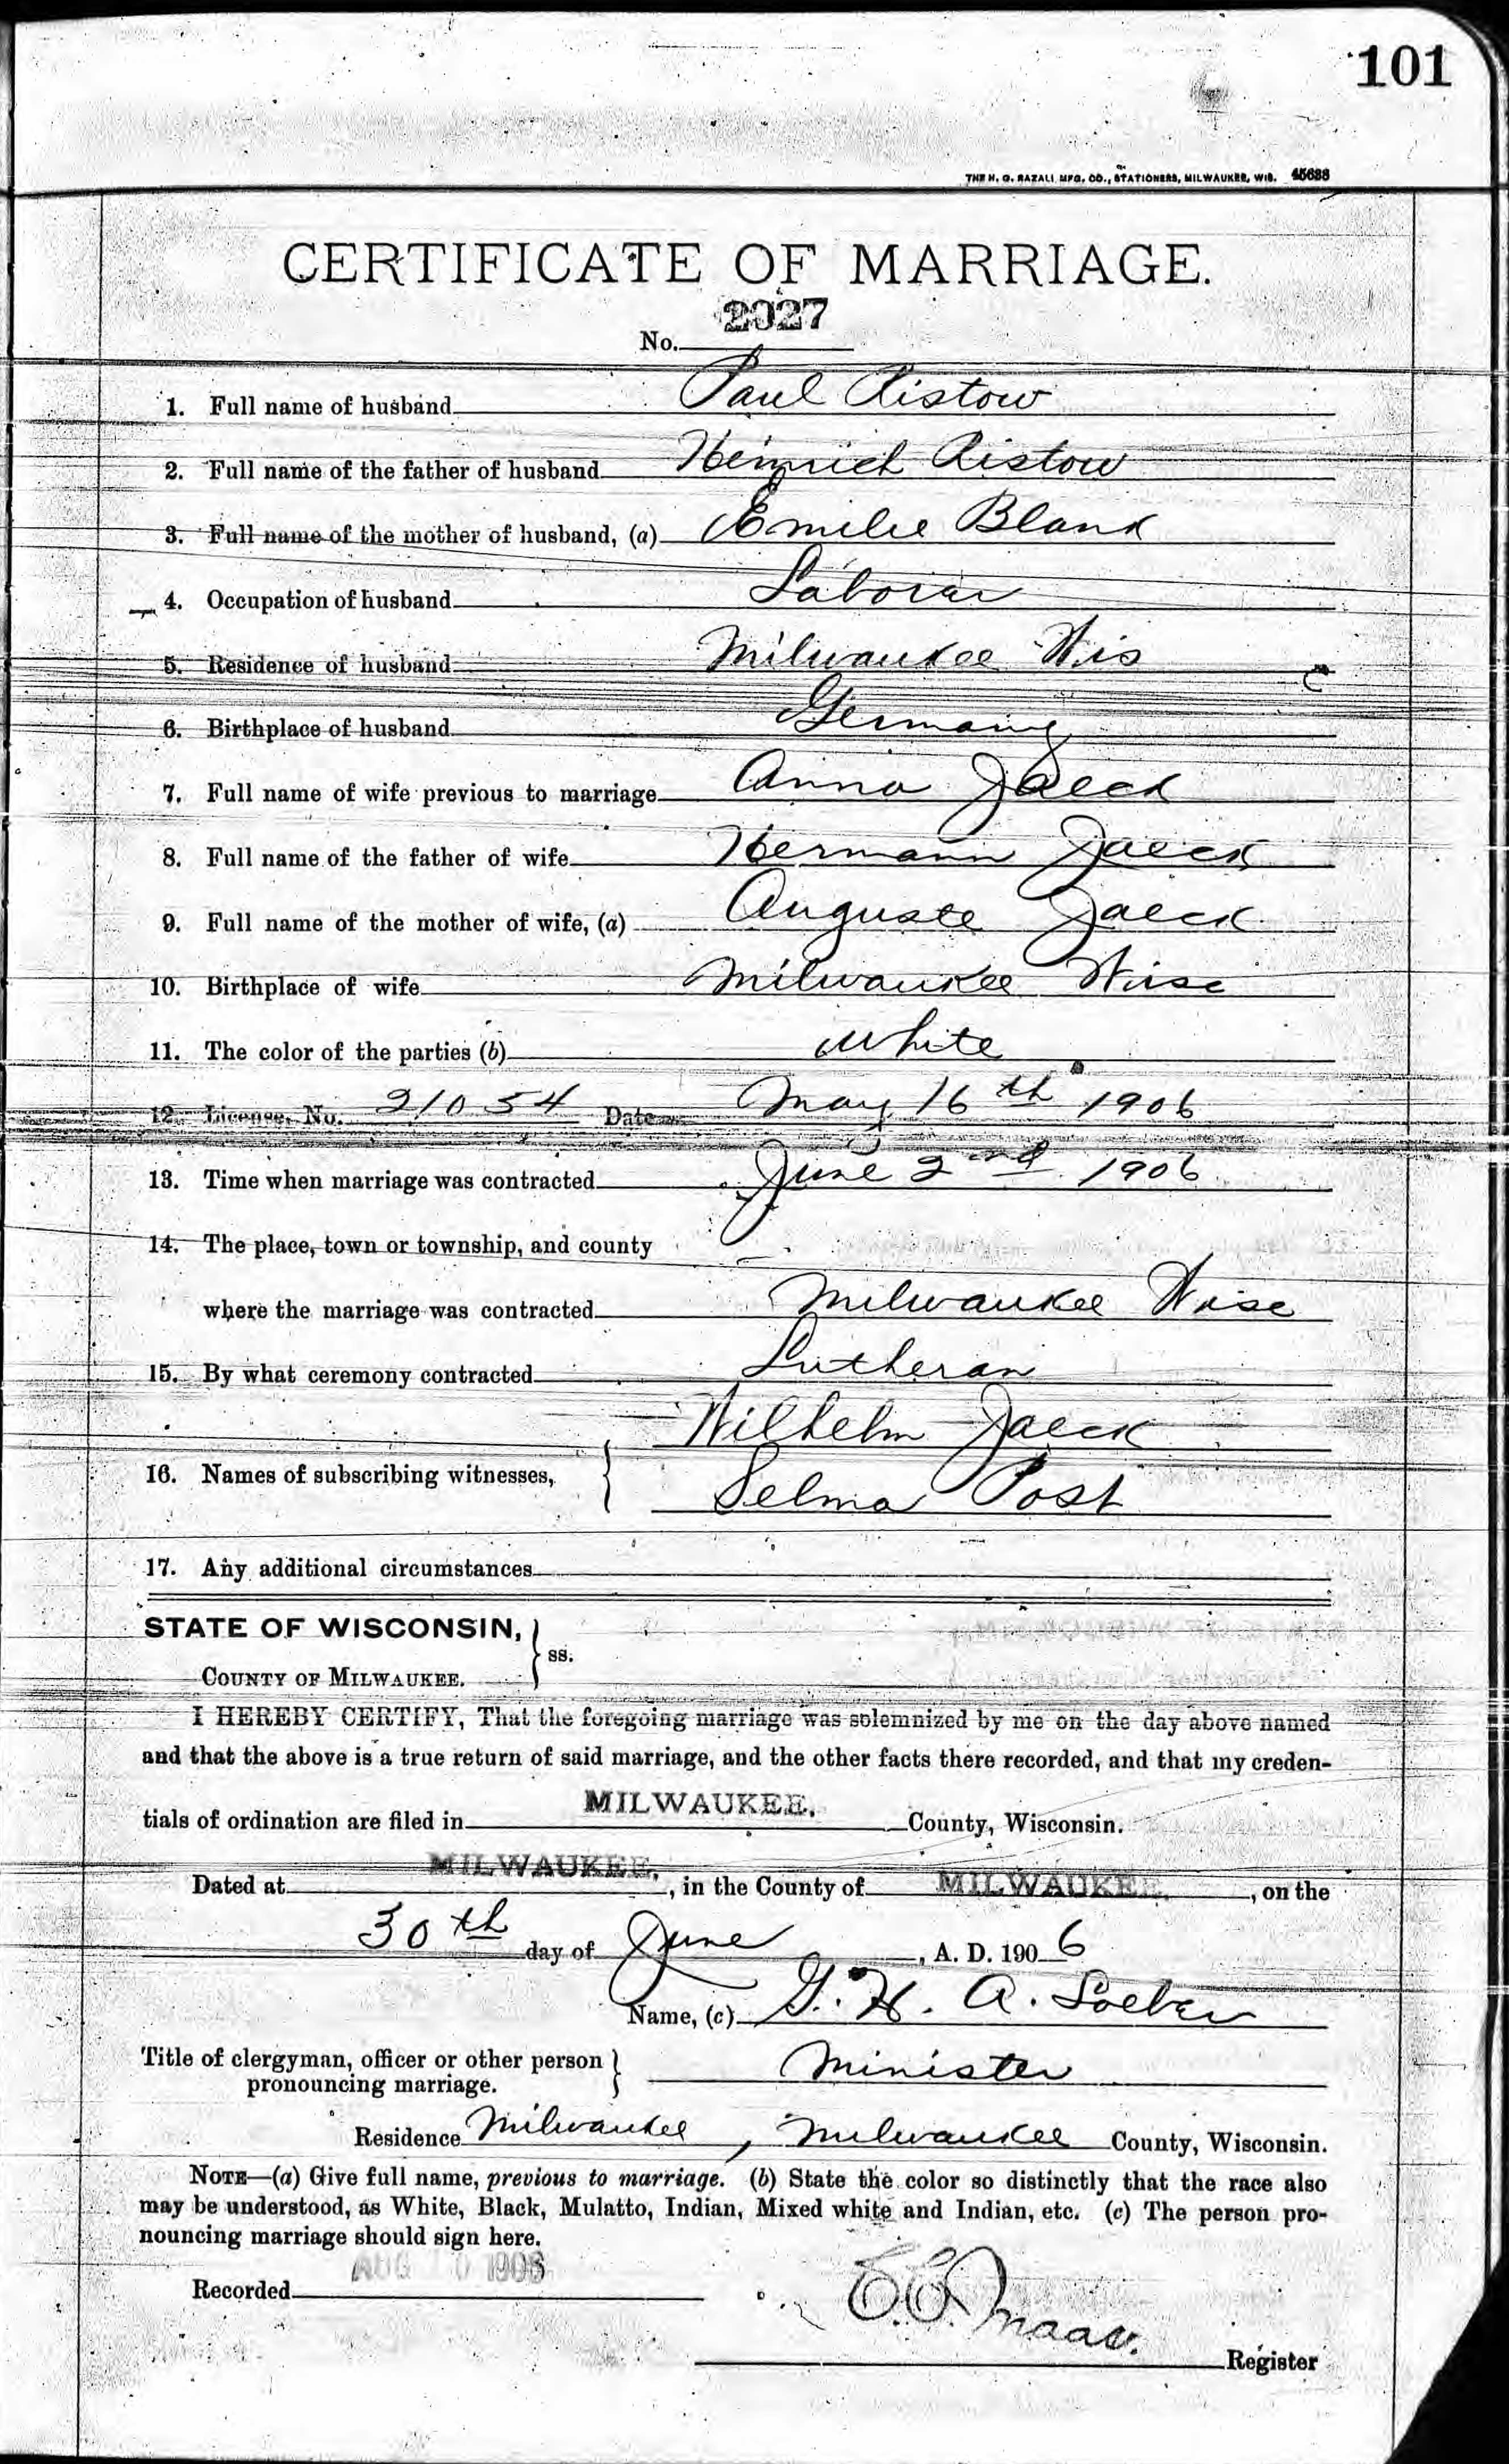 101
THE H. G. RAZALL MFG. CO., STATIONERS, MILWAUKEE, WIS. 45688
CERTIFICATE OF MARRIAGE.
No. 2027
1. Full name of husband Paul Ristow
2. Full name of the father of husband Heinrich Ristow
3. Full name of the mother of husband, (a) Emilie Blank
4. Occupation of husband Laborer
5. Residence of husband Milwaukee Wis
6. Birthplace of husband Germany
7. Full name of wife previous to marriage Anna Jaeck
8. Full name of the father of wife Hermann Jaeck
9. Full name of the mother of wife, (a) Auguste Jaeck
10. Birthplace of wife Milwaukee Wisc
11. The color of the parties (b) White
12. License, No. 21054 Date May 16th 1906
13. Time when marriage was contracted June 2nd 1906
14. The place, town or township, and county
where the marriage was contracted Milwaukee Wisc
15. By what ceremony contracted Lutheran
Wilhelm Jaeck
16. Names of subscribing witnesses,
Selma Post
17. Any additional circumstances
STATE OF WISCONSIN,
ss.
COUNTY OF MILWAUKEE.
I HEREBY CERTIFY, That the foregoing marriage was solemnized by me on the day above named
and that the above is a true return of said marriage, and the other facts there recorded, and that my creden-
tials of ordination are filed in MILWAUKEE. County, Wisconsin.
Dated at MILWAUKEE, in the County of MILWAUKEE, on the
30th day of June, A. D. 1906
Name, (c) G. H. A. Loeber
Title of clergyman, officer or other person
pronouncing marriage. Minister
Residence Milwaukee, Milwaukee County, Wisconsin.
NOTE—(a) Give full name, previous to marriage. (b) State the color so distinctly that the race also
may be understood, as White, Black, Mulatto, Indian, Mixed white and Indian, etc. (c) The person pro-
nouncing marriage should sign here.
Recorded AUG
Maas.
Register